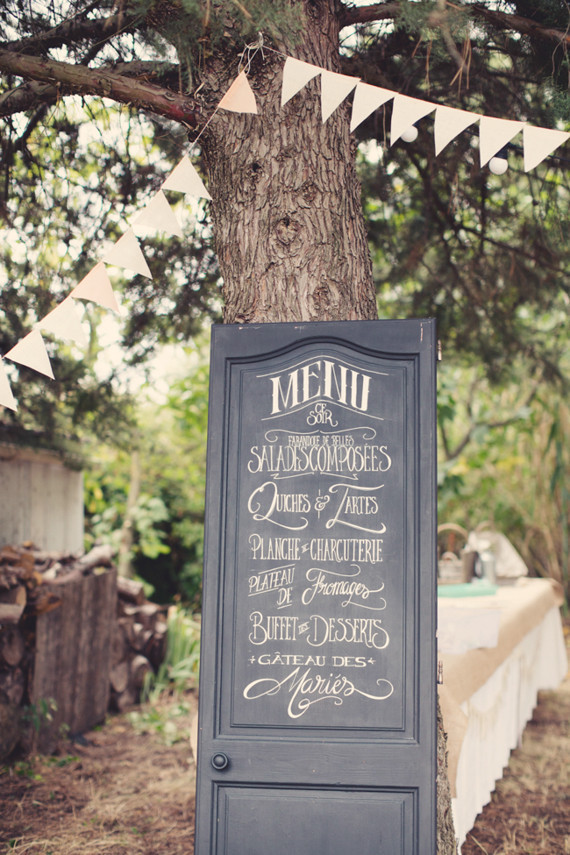 MENU
CE
SOIR
FARANDOLE DE BELLES
SALADES COMPOSÉES
QUICHES & TARTES
PLANCHE DE CHARCUTERIE
PLATEAU
DE Fromages
BUFFET DES DESSERTS
GÂTEAU DES
Mariés